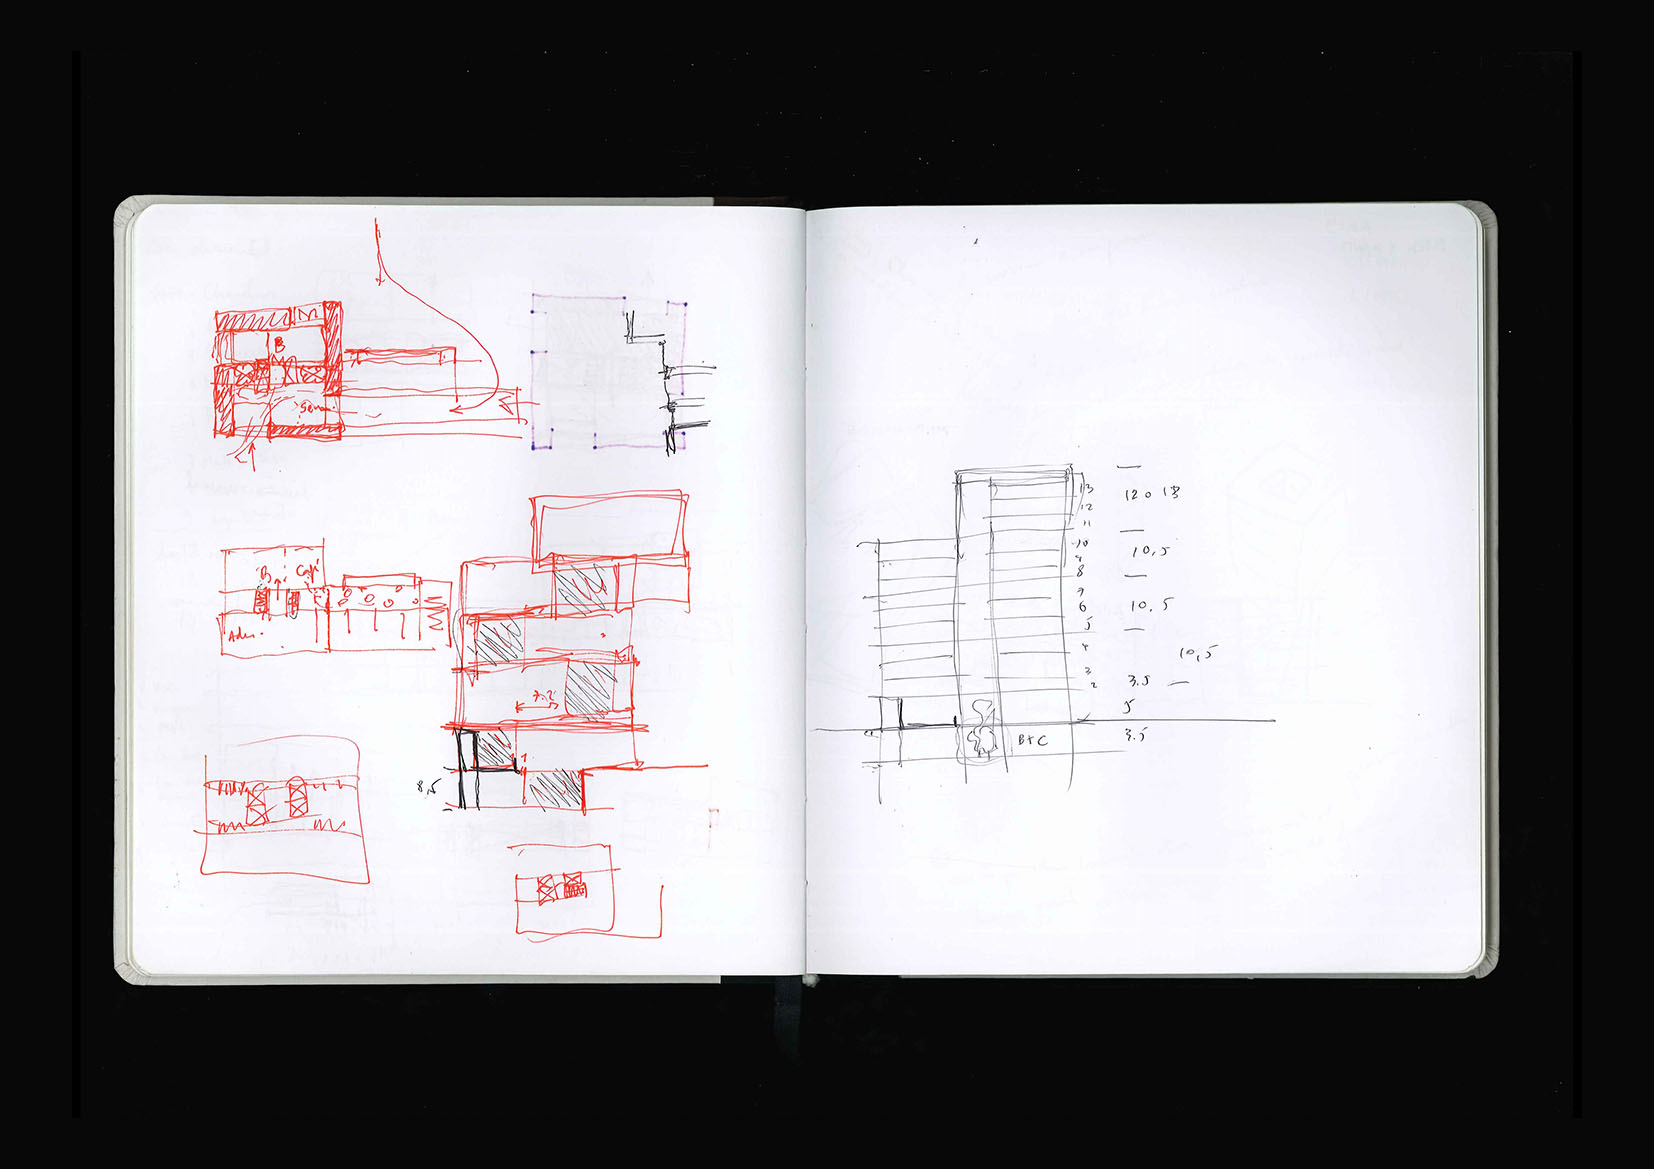 B
B Café
Adm.
7.2
8,5
13
12
11
10
9
8
7
6
5
4
3
2
12 o 13
10,5
10,5
10,5
3.5
5
3.5
B+C